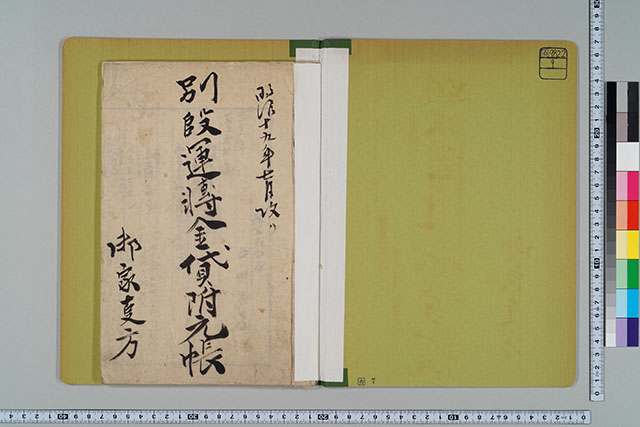 明治十九年七月改リ
別段運轉金貸附元帳
御家
方